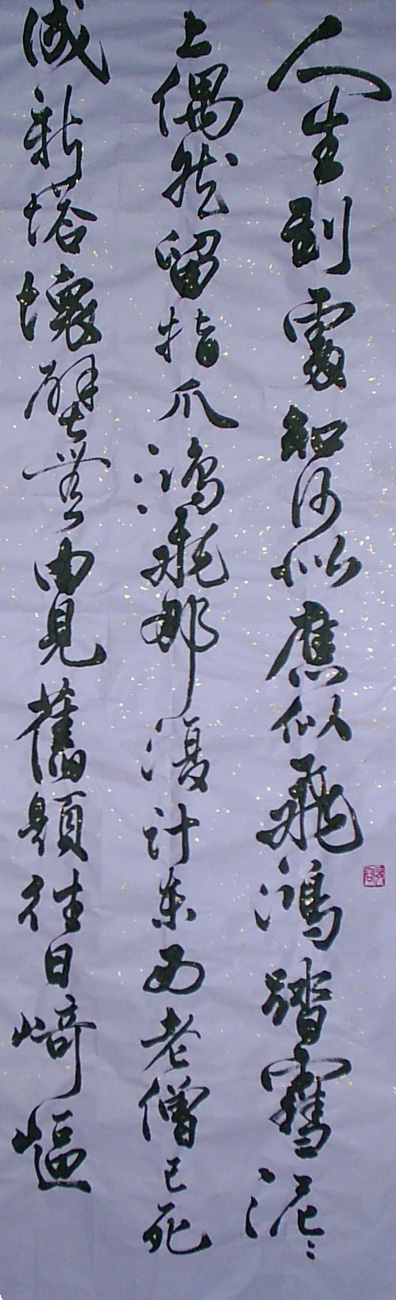 人生到處知何似應似飛鴻踏雪泥〻
上偶然留指爪鴻飛那復計東西老僧已死
成新塔壞壁無由見舊題往日崎嶇